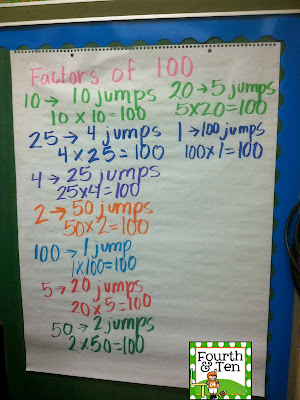 Factors of 100
10 → 10 jumps
10 x 10 = 100
25 → 4 jumps
4 x 25 = 100
4 → 25 jumps
25x4 = 100
2 → 50 jumps
50x2 = 100
100 → 1 jump
1x100=100
5 → 20 jumps
20 x 5 = 100
50 → 2 jumps
2x50=100
20 → 5 jumps
5x20=100
1 → 100 jumps
100x1=100
Fourth
&
Ten